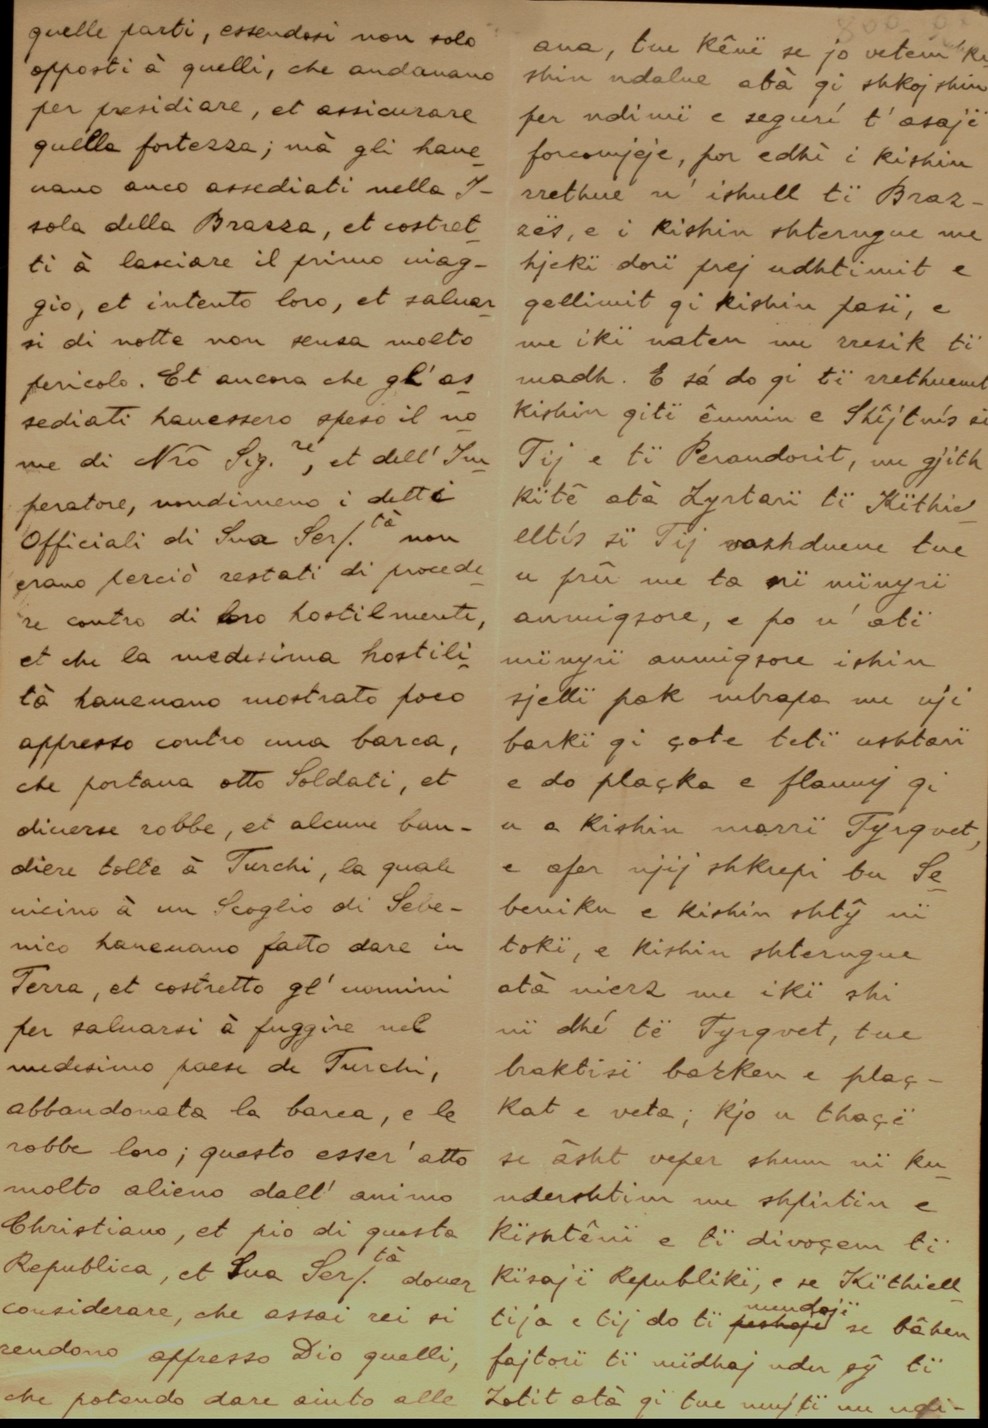 quelle parti, essendosi non solo
opposti à quelli, che andauano
per presidiare, et assicurare
quella fortezza; mà gli haue_
uano anco assediati nella I-
sola della Brazza, et costret_
ti à lasciare il primo uiag-
gio, et intento loro, et saluar_
si di notte non senza molto
pericolo. Et ancora che gl'as_
sediati hauessero speso il no_
me di Nrõ Sig.re, et dell' Im_
peratore, nondimeno i detti
Officiali di Sua Ser/.tà non
erano perciò restati di procede_
re contro di loro hostilmente,
et che la medesima hostili_
tà haueuano mostrato poco
appresso contro una barca,
che portaua otto Soldati, et
diuerse robbe, et alcune ban-
diere tolte à Turchi, la quale
uicino à un Scoglio di Sebe-
nico haueuano fatto dare in
Terra, et costretto gl' uomini
per saluarsi à fuggire nel
medesimo paese de Turchi,
abbandonata la barca, e le
robbe loro; questo esser' atto
molto alieno dall' animo
Christiano, et pio di questa
Republica, et Sua Ser/.tà douer
considerare, che assai rei si
rendono appresso Dio quelli,
che potendo dare aiuto alle
ana, tue kênë se jo vetem
shin ndalue atà qi shkojshin
per ndimë e segurí t'asajë
forcomjeje, por edhè i kishin
rrethue n' ishull të Braz-
zës, e i kishin shterngue me
hjekë dorë prej udhtimit e
qellimit qi kishin pasë, e
me ikë naten me rresik të
madh. E sá do qi të rrethuemt
kishin qitë êmnin e Shêjtnís së
Tij e të Perandorit, me gjith
këtê atà Zyrtarë të Këthie_
lltís së Tij vazhduene tue
u prû me ta në mënyrë
anmiqsore, e po n' atë
mënyrë anmiqsore ishin
sjellë pak mbrapa me nji
barkë qi çote tetë ushtarë
e do plaçka e flamuj qi
u a kishin marrë Tyrqvet,
e afer njij shkrepi bu Se_
beniku e kishin shtŷ në
tokë, e kishin shterngue
atà nierz me ikë shi
në dhé të Tyrqvet, tue
braktisë barken e plaç-
kat e veta; kjo u thaçë
se âsht veper shum në ku_
ndershtim me shpirtin e
kishtênë e të divoçem të
kësajë Republikë, e se Këthiell_
tija e tij do të mendojë se bâhen
fajtorë të mëdhaj ndër sŷ të
Zotit atà qi tue mujtë me ndi-